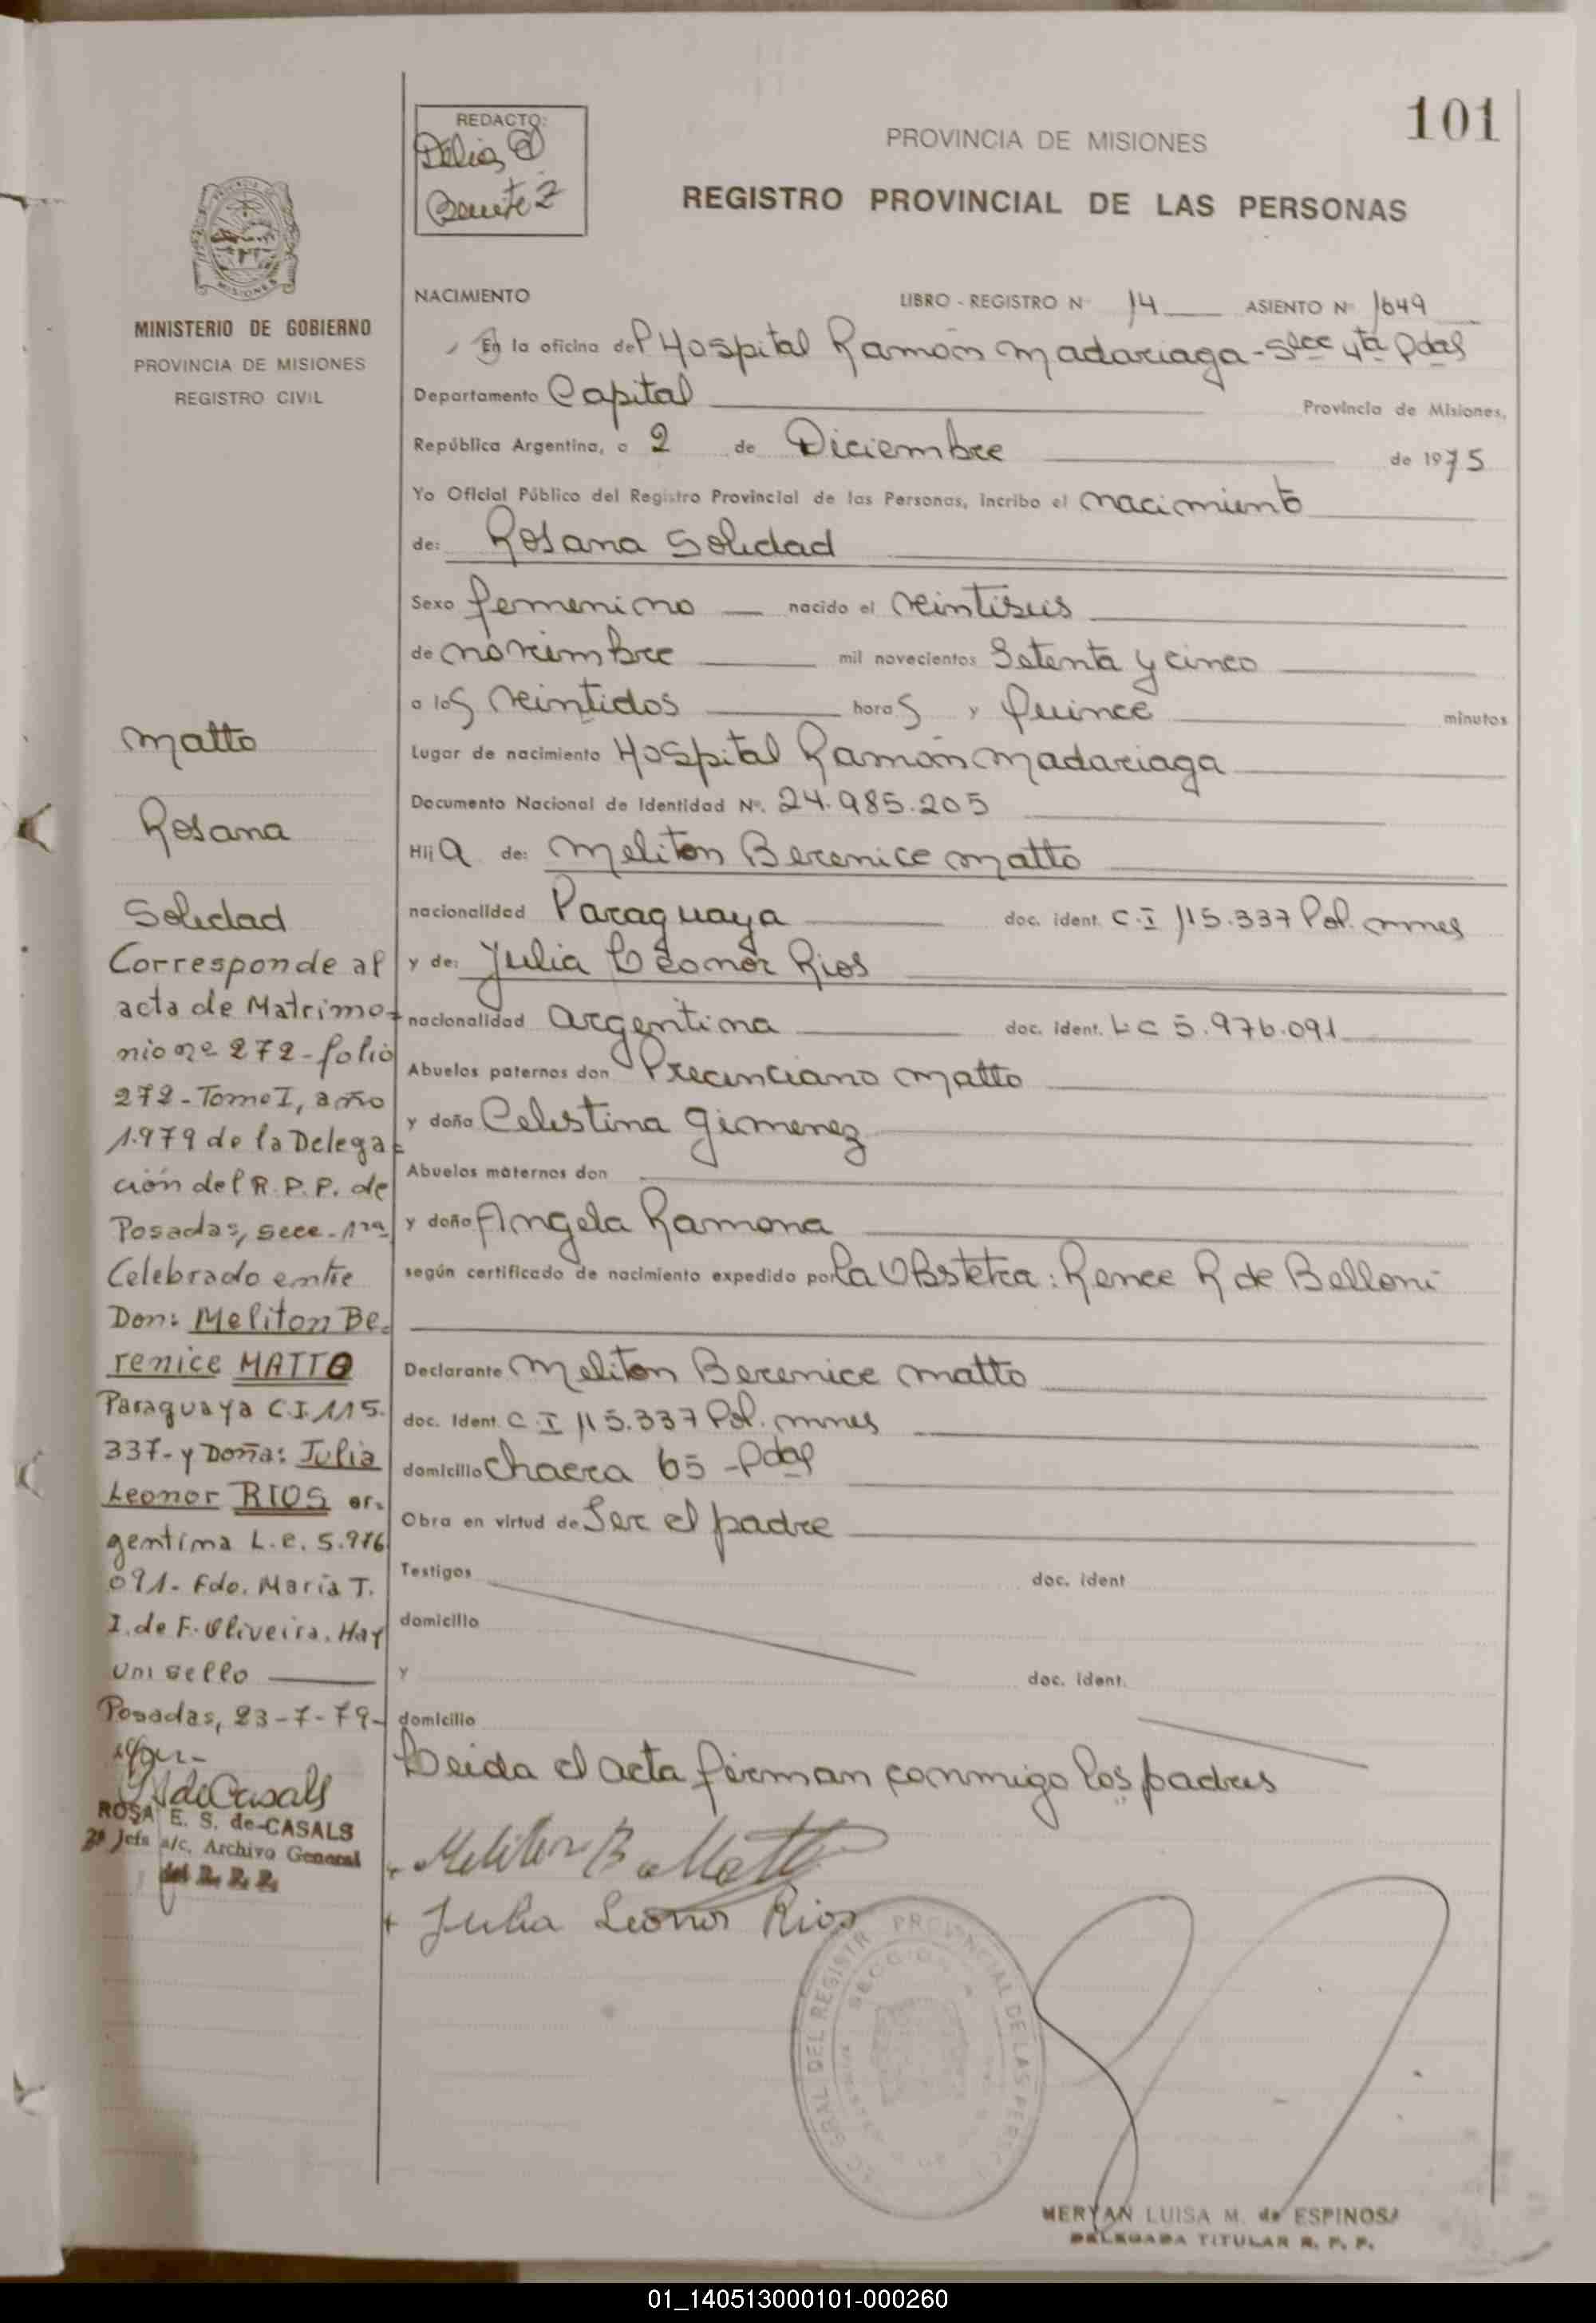 101
REDACTO:
Delia
Benitez
PROVINCIA DE MISIONES
REGISTRO PROVINCIAL DE LAS PERSONAS
MISIONES
MINISTERIO DE GOBIERNO
PROVINCIA DE MISIONES
REGISTRO CIVIL
NACIMIENTO LIBRO - REGISTRO Nº 14 ASIENTO Nº 1649
En la oficina del Hospital Ramón Madariaga - Secc 4ta Pdas
Departamento Capital Provincia de Misiones,
República Argentina, a 2 de Diciembre de 1975
Yo Oficial Público del Registro Provincial de las Personas, incribo el nacimiento
de: Rosana Soledad
Sexo femenino nacido el veintiseis
de noviembre mil novecientos Setenta y cinco
a los veintidos horas y quince minutos
Lugar de nacimiento Hospital Ramón Madariaga
Documento Nacional de Identidad Nº. 24.985.205
Hija de: Meliton Berenice Matto
nacionalidad Paraguaya doc. ident. C.I 115.337 Pol. mnes
y de: Julia Leonor Rios
nacionalidad argentina doc. ident. L C 5.976.091
Abuelos paternos don Matto
y doña Celestina Gimenez
Abuelos maternos don
y doña Angela Ramona
según certificado de nacimiento expedido por la Obstetra: Renee R de Belloni
Declarante Meliton Berenice Matto
doc. Ident. C.I 115.337 Pol. mnes
domicilio Chacra 65 - Pdas
Obra en virtud de Ser el padre
Testigos doc. ident
domicilio
y doc. ident.
domicilio
Leida el acta firman conmigo los padres
Meliton B. Matto
Julia Leonor Rios
Matto
Rosana
Soledad
Corresponde al
acta de Matrimo-
nio nº 272 - folio
272 - Tomo I, año
1.979 de la Delega-
ción del R. P. P. de
Posadas, secc. 1ra
Celebrado entre
Don: Meliton Be-
renice MATTO
Paraguaya C.I. 115.
337 - y Doña: Julia
Leonor RIOS ar-
gentina L.C. 5.976
091 - Fdo. Maria T.
I. de F. Oliveira. Hay
un sello
Posadas, 23-7-79 -
de Casals
ROSA E. S. de CASALS
2ª Jefa a/c. Archivo General
PROVINCIAL DE LAS
DEL REGISTR
SECCION
MERYAN LUISA M. de ESPINOSA
DELEGADA TITULAR R. P. P.
01_140513000101-000260